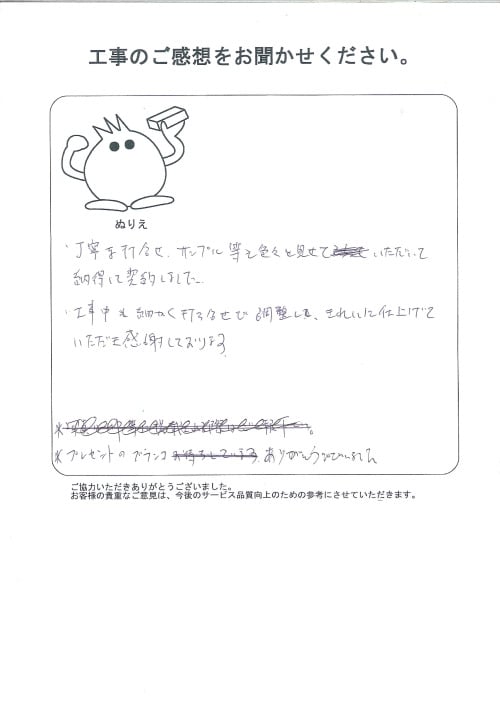 工事のご感想をお聞かせください。
ぬりえ
・丁寧な打合せ、サンプル等も色々と見せていただいて
納得して契約しました。
・工事中も細かく打ち合せや調整しも、きれいに仕上げて
いただき感謝しております
※
※プレゼントのブランコ お待ちしています ありがとうございました
ご協力いただきありがとうございました。
お客様の貴重なご意見は、今後のサービス品質向上のための参考にさせていただきます。